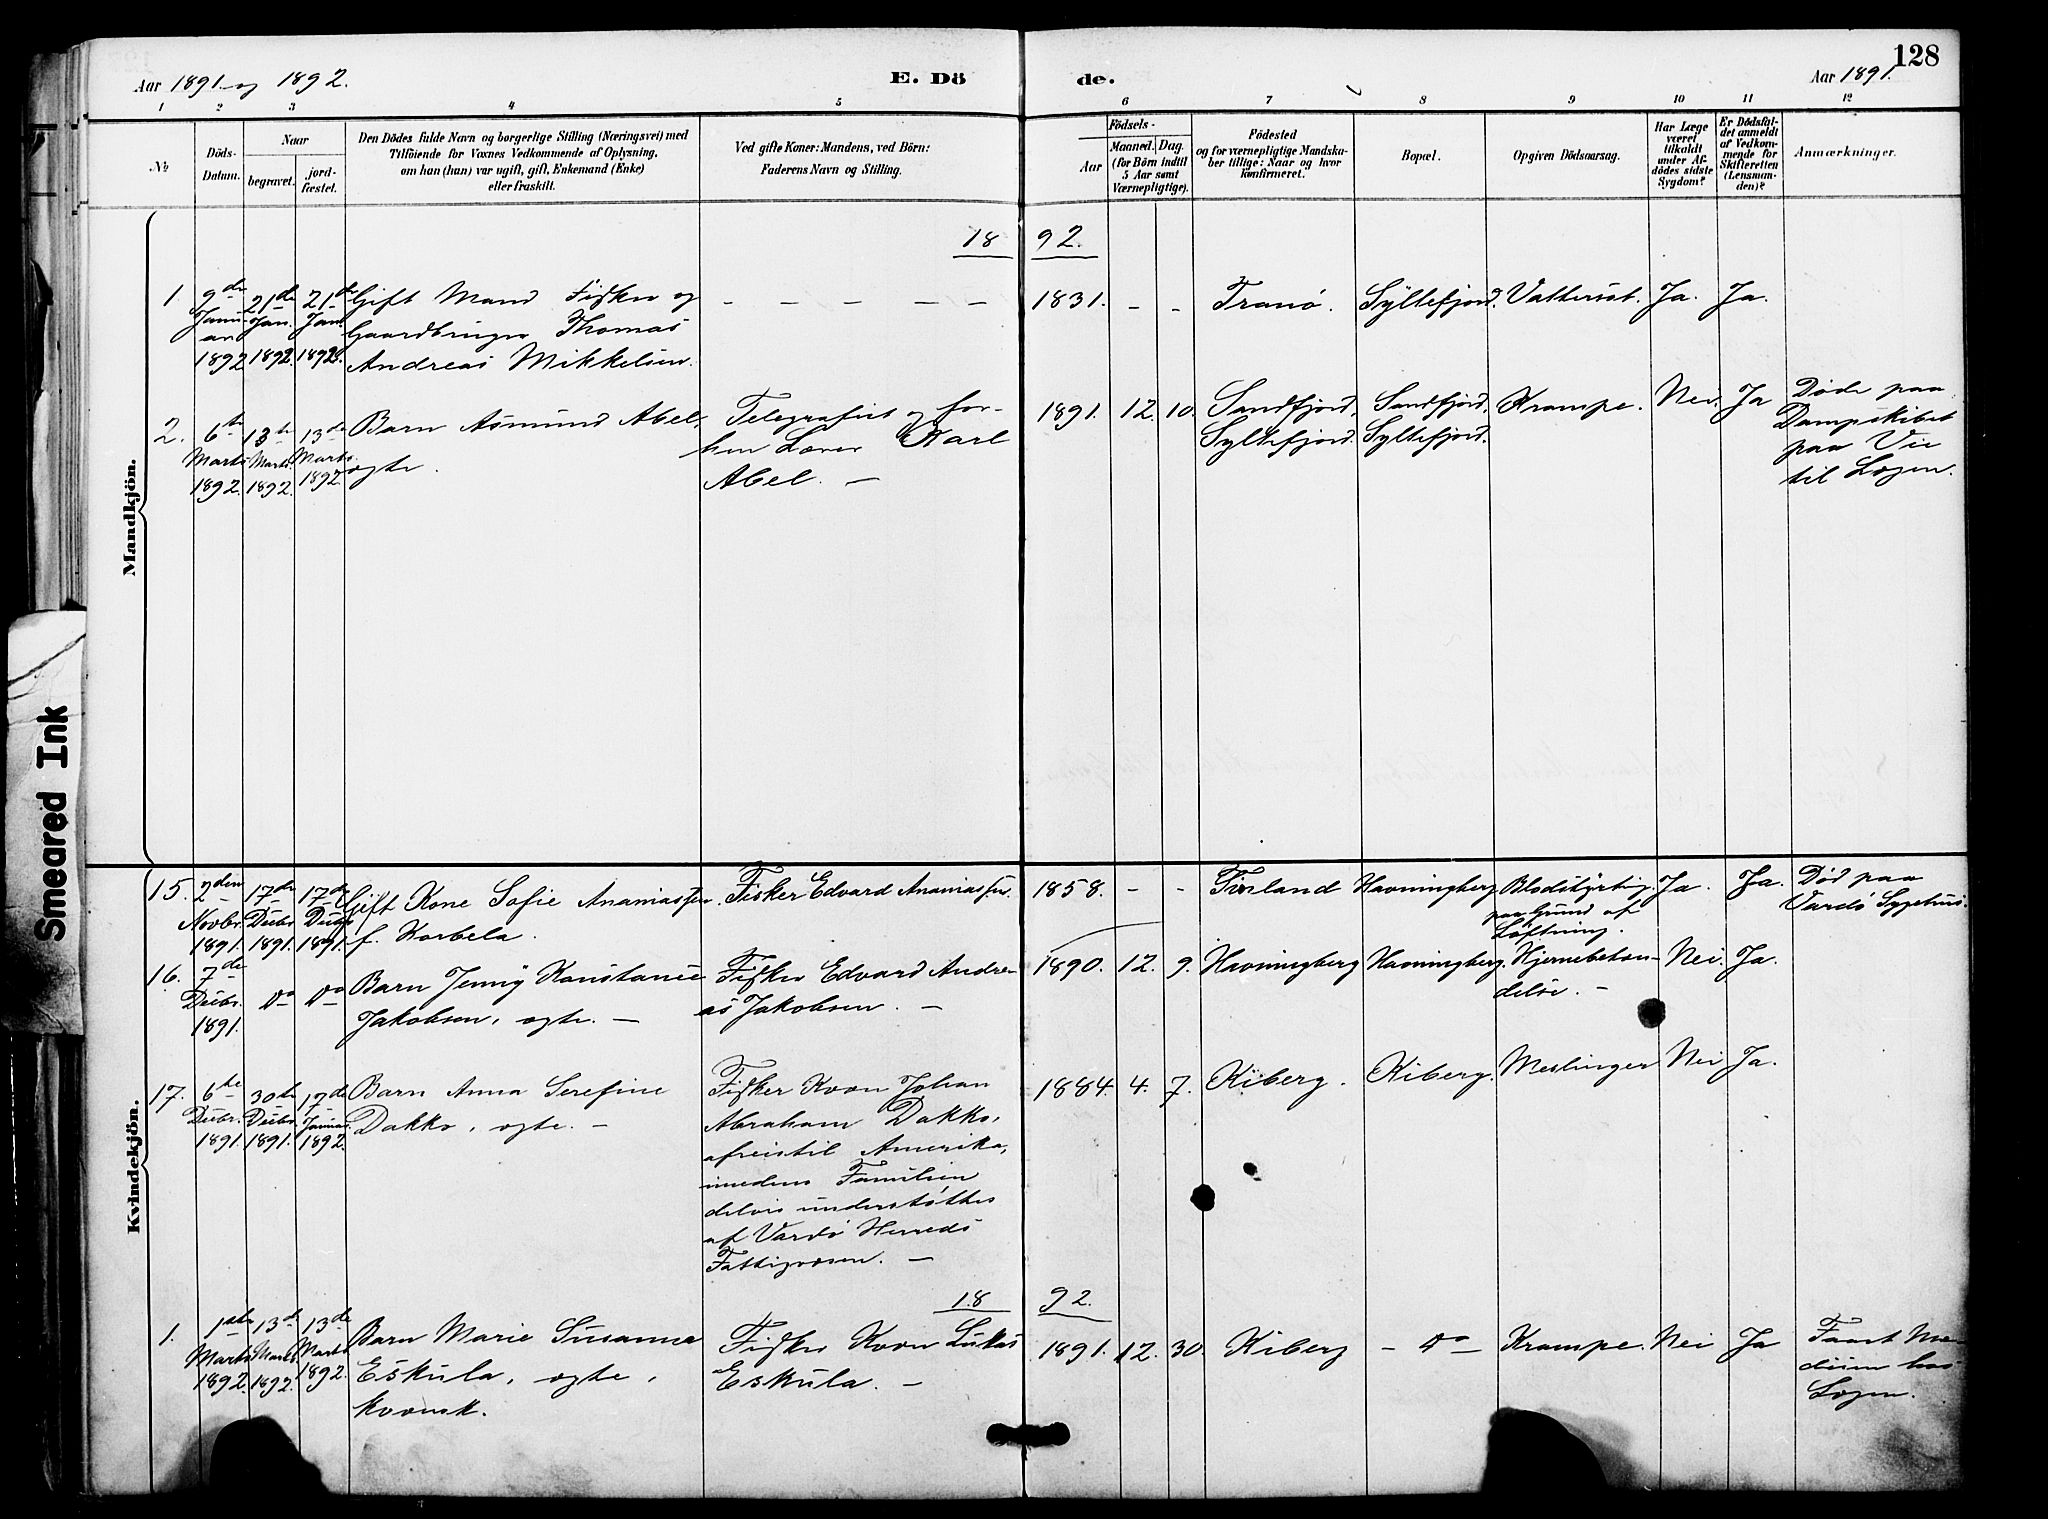 128
Aar 1891 og 1892.
E. Dö
de.
Aar 1891.
1 2 3 4 5 6 7 8 9 10 11 12
№
Döds-
Datum.
Naar
begravet.
jord-
fæstet.
Den Dödes fulde Navn og borgerlige Stilling (Næringsvei) med
Tilföiende for Voxnes Vedkommende af Oplysning,
om han (hun) var ugift, gift, Enkemand (Enke)
eller fraskilt.
Ved gifte Koner: Mandens, ved Börn:
Faderens Navn og Stilling.
Födsels-
Aar
Maaned.
Dag.
(for Börn indtil
5 Aar samt
Værnepligtige).
Födested
og for værnepligtige Mandska-
ber tillige: Naar og hvor
konfirmeret.
Bopæl.
Opgiven Dödsaarsag.
Har Læge
været
tilkaldt
under Af-
dödes sidste
Sygdom?
Er Dödsfal-
det anmeldt
af Vedkom-
mende for
Skifteretten
(Lensman-
den)?
Anmærkninger.
Mandkjön.
1892.
1. 9de Januar 1892 21de Jan. 1892. 21de Jan. 1892. Gift Mand Fisker og
Gaardbruger Thomas
Andreas Mikkelsen.
– – – – –
1831. – – Tranö. Syltefjord. Vattersot. Ja. Ja.
2. 6te Marts 1892. 13de Marts 1892. 13de Marts 1892. Barn Asmund Abel,
ægte.
Telegrafist og for-
hen Lærer Karl
Abel. –
1891. 12. 10. Sandfjord, Syltefjord. Sandfjord, Syltefjord. Krampe. Nei. Ja
Døde paa
Dampskibet
paa Vei
til Lægen.
Kvindekjön.
15. 2den Novbr. 1891. 17de Decbr. 1891. 17de Decbr. 1891. Gift Kone Sofie Ananiassen
f. Korbela.
Fisker Edvard Ananiassen.
1858. – – Finland Havningberg Blodstyrtning
paa Grund af
Løftning.
Ja. Ja. Död paa
Vardö Sygehus.
16. 7de Decbr. 1891. do do Barn Jenny Konstance
Jakobsen, ægte. –
Fisker Edvard Andre-
as Jakobsen. –
1890. 12. 9. Havningberg Havningberg. Hjernebetæn-
delse. –
Nei. Ja.
17. 6te Decbr. 1891. 30te Decbr. 1891. 17de Januar 1892. Barn Anna Serefine
Dakko, ægte. –
Fisker Kvæn Johan
Abraham Dakko,
afreist til Amerika,
imedens Familien
delvis understøttes
af Vardö Herreds
Fattigvæsen. –
1884. 4. 7. Kiberg. Kiberg. Meslinger Nei Ja.
1892.
1. 1ste Marts 1892. 13de Marts 1892. 13de Marts 1892. Barn Marie Susanna
Eskula, ægte,
kvænsk.
Fisker Kvæn Lukas
Eskula. –
1891. 12. 30. Kiberg – do – Krampe. Nei Ja Faaet Me-
dicin hos
Lægen.
Smeared Ink